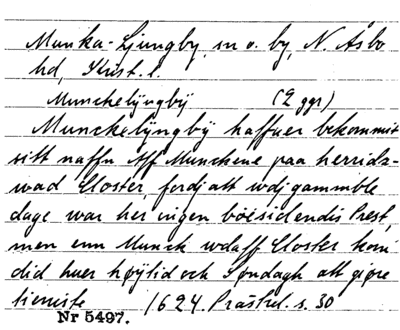 Munka-Ljungby, sn o. by, N. Åsbo
hd, Krist. l.
Munchelÿngbÿ (2 ggr)
Munckelÿngbÿ haffuer bekommit
sitt naffn Aff Munchene paa herridz-
wad Closter, fordj att udj gammble
dage war her ingen boesidendis Prest,
men enn Munck udaff Closter kom
did huer høÿtid och Søndagh att giøre
tieniste 1624. Prästrel. s. 30
Nr 5497.